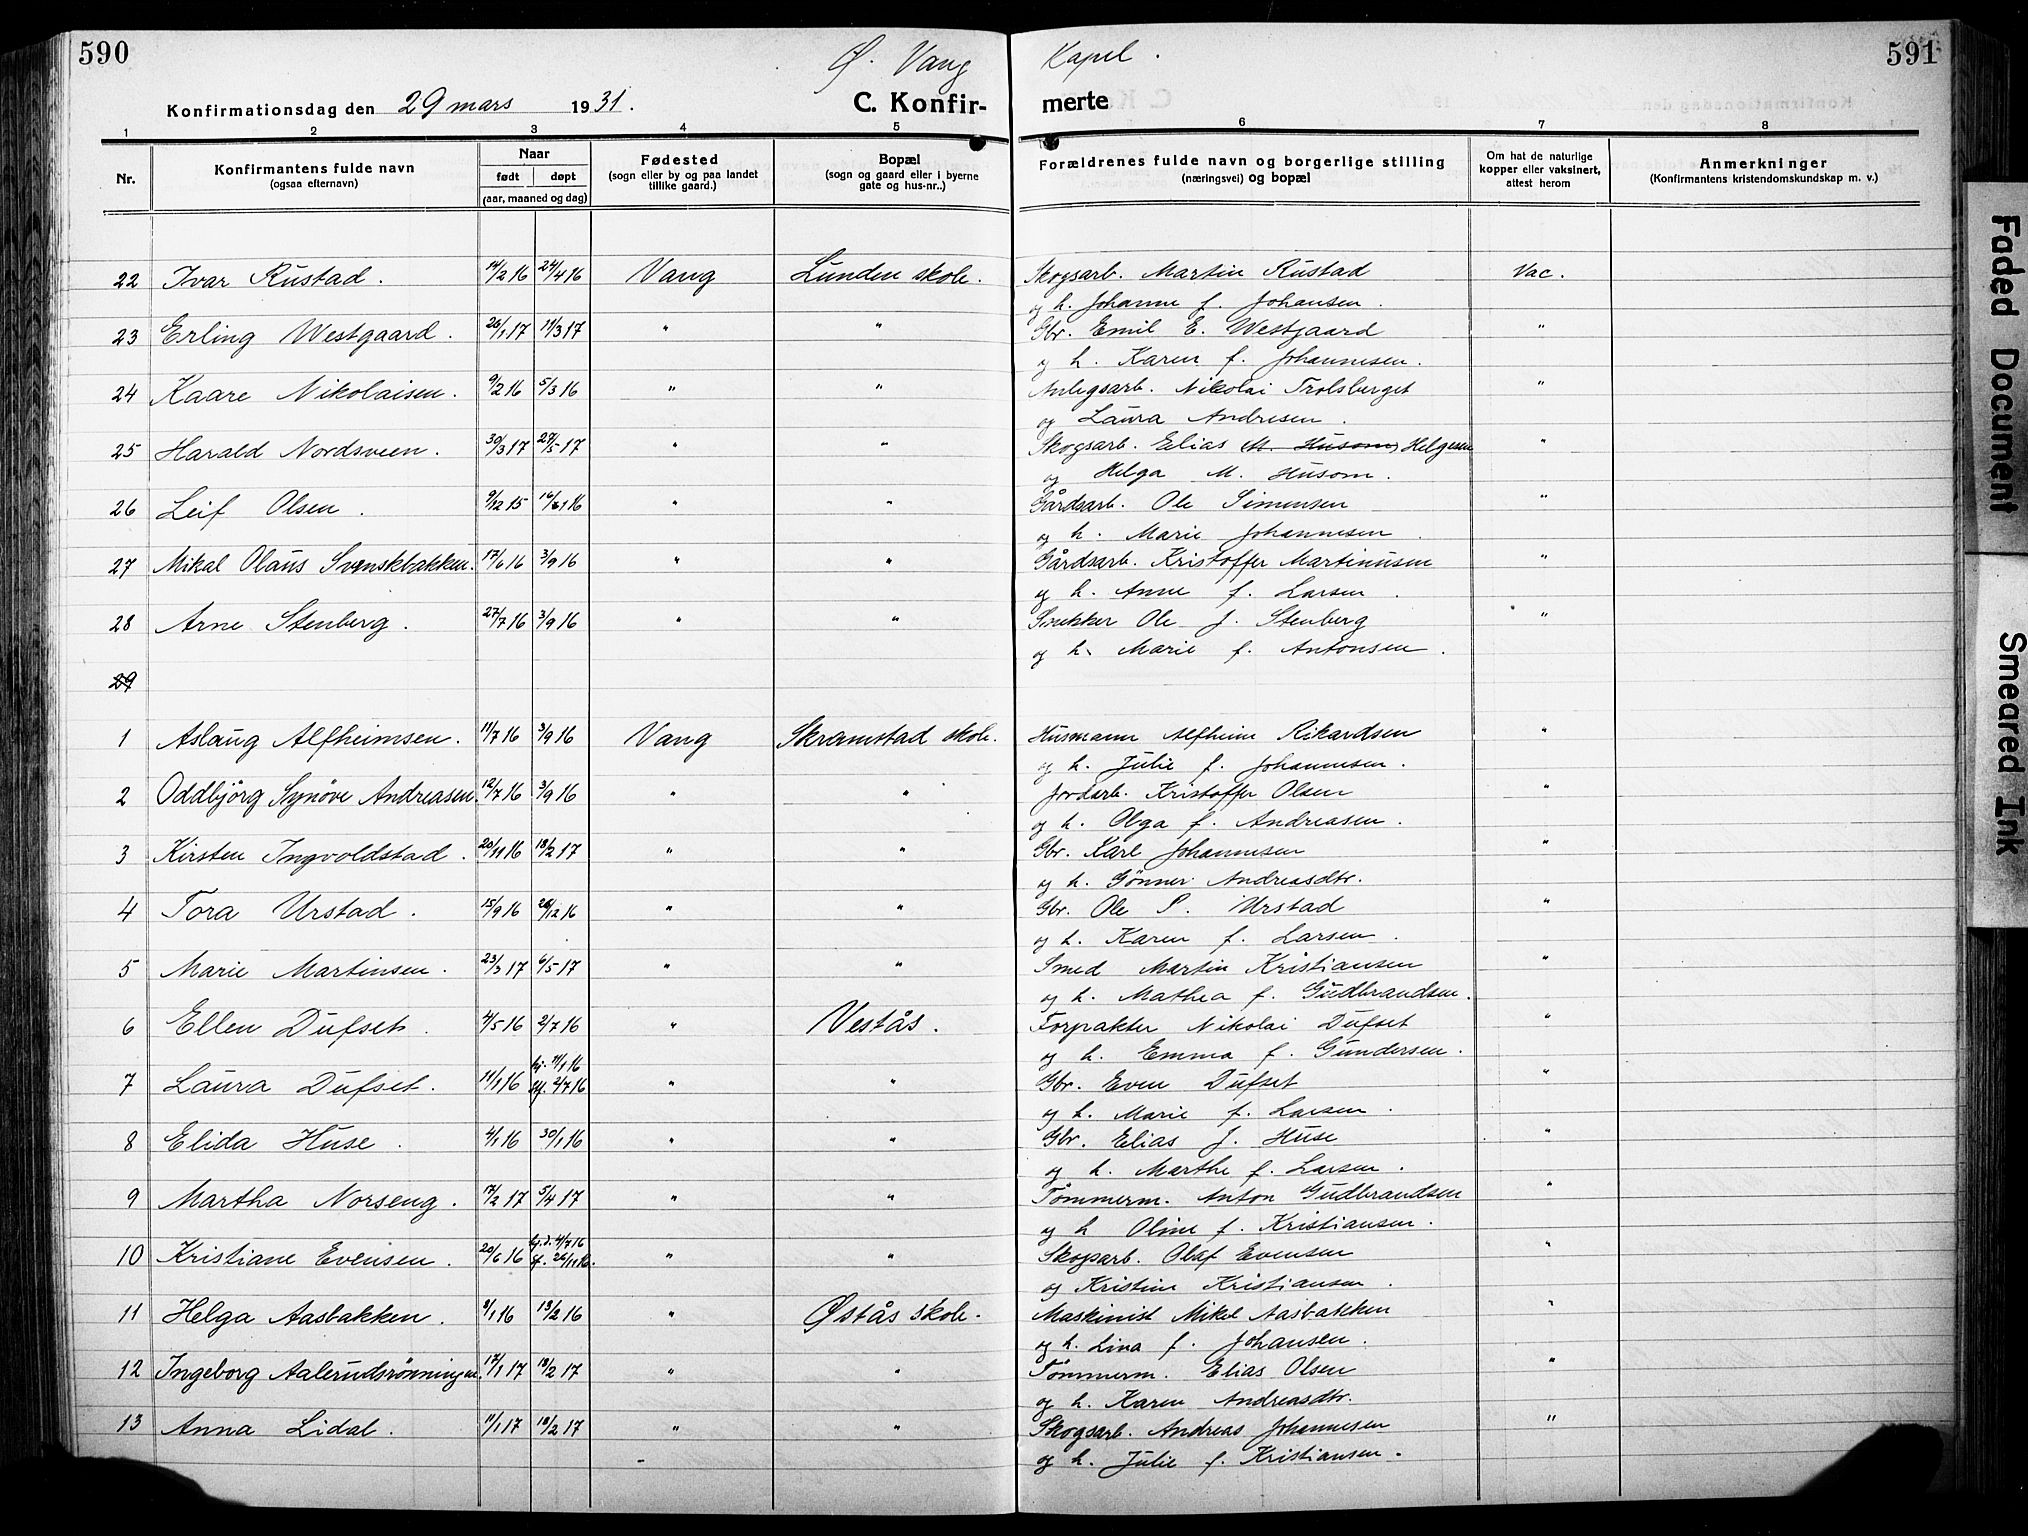 590
Ø. Vang Kapel.
591
Konfirmationsdag den 29 mars 1931. C. Konfirmerte
1 2 3 4 5 6 7 8
Nr. Konfirmantens fulde navn (ogsaa efternavn) Naar født døpt (aar, maaned og dag) Fødested (sogn eller by og paa landet tillike gaard.) Bopæl (sogn og gaard eller i byerne gate og hus-nr..) Forældrenes fulde navn og borgerlige stilling (næringsvei) og bopæl Om hat de naturlige kopper eller vaksinert, attest herom Anmerkninger (Konfirmantens kristendomskundskap m. v.)
22 Ivar Rustad. 14/2 16 24/4 16 Vang Lunden skole. Skogsarb. Martin Rustad Vac.
og h. Johanne f. Johansen.
23 Erling Westgaard. 26/1 17 11/3 17 " " Gbr. Emil E. Westgaard "
og h. Karen f. Johannesen.
24 Kaare Nikolaisen. 9/2 16 5/3 16 " " Anlegsarb. Nikolai Trolsberget "
og Laura Andresen.
25 Harald Nordsveen. 30/3 17 27/5 17 " " Skogsarb. Elias M. Husom, Helgesen "
og Helga M. Husom.
26 Leif Olsen. 9/12 15 16/1 16 " " Gårdsarb. Ole Simensen "
og h. Marie Johannesen.
27 Mikal Olaus Svenskbakken. 17/6 16 3/9 16 " " Gårdsarb. Kristoffer Martinusen "
og h. Anne f. Larsen.
28 Arne Stenberg. 27/7 16 3/9 16 " " Snekker Ole J. Stenberg "
og h. Marie f. Antonsen.
29
1 Aslaug Alfheimsen. 11/7 16 3/9 16 Vang Skramstad skole. Husmann Alfheim Rikardsen "
og h. Julie f. Johannesen.
2 Oddbjörg Synöve Andreasen. 12/7 16 3/9 16 " " Jordarb. Kristoffer Olsen "
og h. Olga f. Andreasen.
3 Kirsten Ingvoldstad. 20/11 16 18/2 17 " " Gbr. Karl Johannesen "
og h. Gönner Andreasdtr.
4 Tora Urstad. 15/9 16 26/12 16 " " Gbr. Ole S. Urstad "
og h. Karen f. Larsen.
5 Marie Martinsen. 23/3 17 6/5 17 " " Smed Martin Kristiansen "
og h. Mathea f. Gudbrandsen.
6 Ellen Dufset. 4/5 16 2/7 16 " Vestås. Forpakter Nikolai Dufset "
og h. Emma f. Gundersen.
7 Laura Dufset. 11/1 16 hj. 11/1 16 stf. 2/7 16 " " Gbr. Even Dufset "
og h. Marie f. Larsen.
8 Elida Huse. 4/1 16 30/1 16 " " Gbr. Elias J. Huse "
og h. Marthe f. Larsen.
9 Martha Norseng. 17/2 17 5/4 17 " " Tömmerm. Anton Gudbrandsen "
og h Oline f. Kristiansen.
10 Kristiane Evensen. 20/6 16 hj.d. 4/7 16 stf. 26/11 16. " " Skogsarb. Olaf Evensen "
og Kristine Kristiansen.
11 Helga Aasbakken. 8/1 16 13/2 16 " Østås skole. Maskinist Mikal Aasbakken "
og h. Lina f. Johansen.
12 Ingeborg Aalerudsrönningen. 17/1 17 18/2 17 " " Tömmerm. Elias Olsen "
og h. Karen Andreasdtr.
13 Anna Lidal. 11/1 17 18/2 17 " " Skogsarb. Andreas Johannesen "
og h. Julie f. Kristiansen.
Faded Document
Smeared Ink